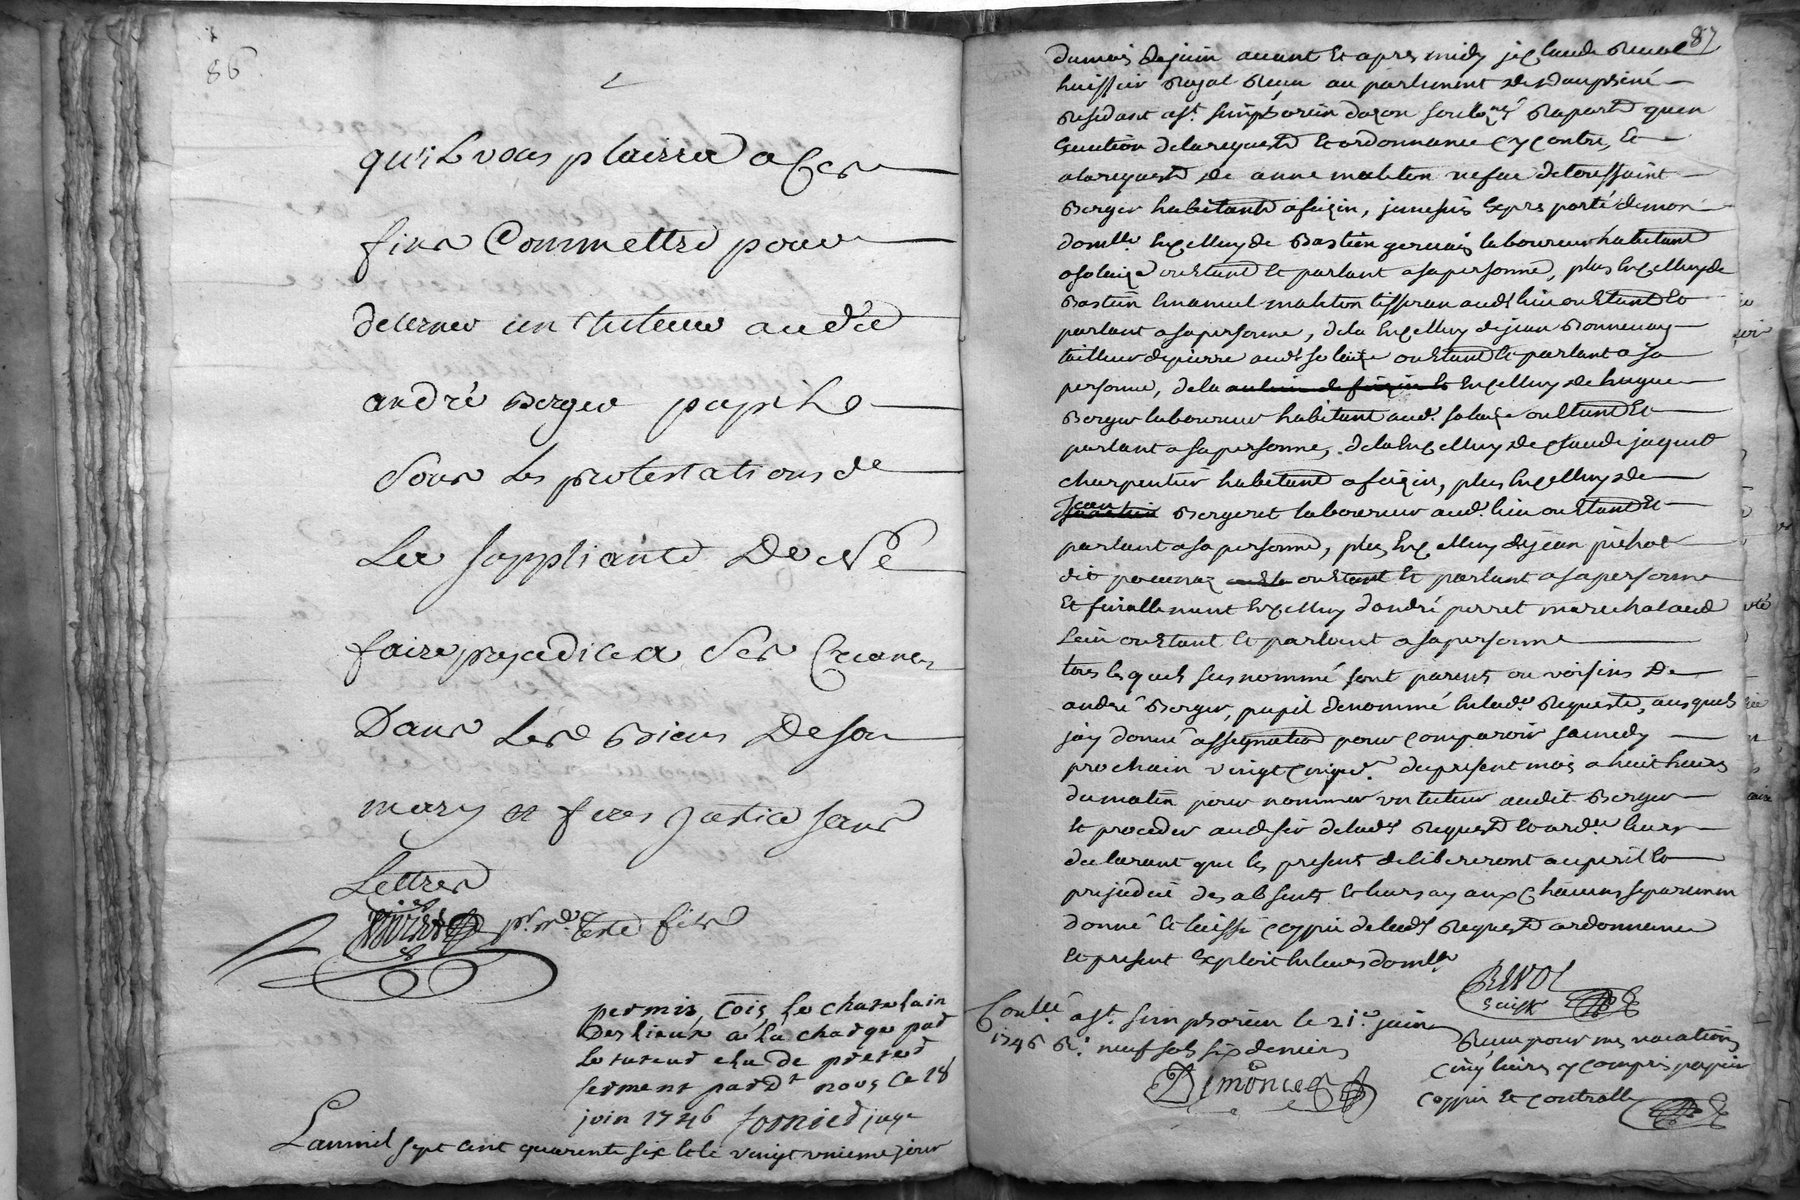 86
qu'il vous plaizra a Ces
fins Commettre pour
decerner un tuteur audit
andré Berger pupille
Sous les protestations de
La suppliante De Ne
faire prejudice a Ses Creances
Dans Les Biens De son
mary et feres justice sans
Lettres
pr. md. este fils
permis, Cõis, Le Chatelain
Des lieux a la charge par
Le tuteur elu de preter
serment pard.t nous Ce 18
juin 1746 fornier juge
Lanmil sept cent quarente six & le vingt unieme jour
87
dumois de juin avant & apres midy je Claude Revol
huissier Royal Reçu au parlement de dauphiné
Residant a St. simphorien dozon soubz.né Raporte quen
execution de la requeste & ordonnance cy contre, &
a la requeste de anne mahiton vefue de toussaint
Berger habitante a feizin, je me suis expres porté de mon
domlle en celluy de Bastien gervais laboureur habitant
a solaize ou étant & parlant a sa personne, plus en celluy de
Bastien Emanuel mahiton tisseran aud. lieu ou étant &
parlant a sa personne, de la en celluy de jean Bonnenay
tailleur de pierre aud. solaize ou étant & parlant a sa
personne, de la en celluy de hugue
Berger laboureur habitant aud. solaize ou étant &
parlant a sa personne, de la en celluy de Claude jaquet
charpentier habitant a feizin, plus en celluy de
Jean Bergeret laboureur aud. lieu ou étant &
parlant a sa personne, plus en celluy de jean pichot
dit ou étant & parlant a sa personne
et finallement en celluy dandré perret marechal aud
lieu ou étant & parlant a sa personne
tous lesquels susnommé sont parents ou voisins De
andré Berger, pupil denommé en lad.e Requeste, ausquels
jay donné assignation pour comparoir samedy
prochain vingt cinqe. du present mois a huit heures
du matin pour nommer un tuteur audit Berger
& proceder au desir de lad. Requeste & ord.ce leurs
declarant que les presents delibereront au peril &
prejudice des absents & leurs ay aux chacuns separemen
donné & laissé coppie de lad. Requeste ordonnance
et present exploit en leurs domlle
REVOL
Contllé a St. simphorien le 21e. juin
1746 R. neuf sols six deniers
Demonce
Reçu pour mes vacations
cinq livres y compris papier
coppie et controlle